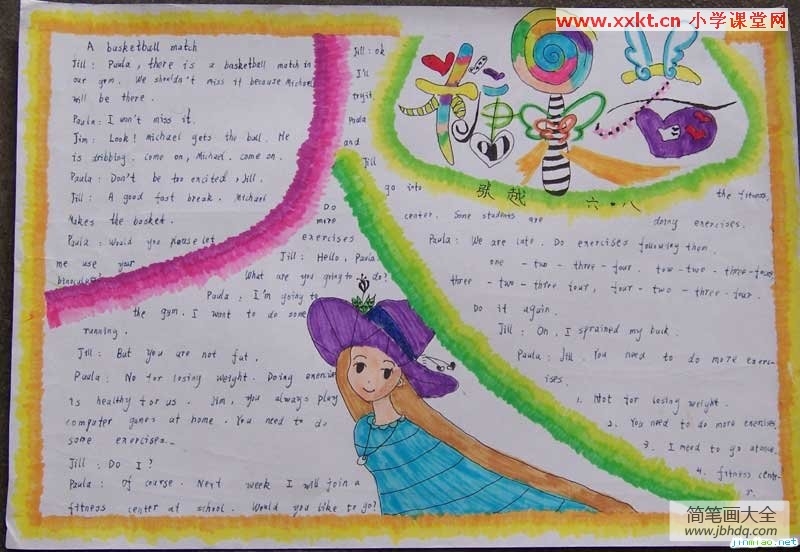 www.xxkt.cn 小学课堂网
A basketball match
Jill: Paula, there is a basketball match in
our gym. We shouldn't miss it because Michael
will be there.
Paula: I won't miss it.
Jim: Look! Michael gets the ball. He
is dribbling. Come on, Michael. come on.
Paula: Don't be too excited, Jill.
Jill: A good fast break. Michael
Makes the basket.
Paula: Would you please let
me use your
binoculars?
Do
more
exercises
Jill: Hello, Paula.
What are you going to do?
Paula: I'm going to
the gym. I want to do some
running.
Jill: But you are not fat.
Paula: No for losing weight. Doing exercise
is healthy for us. Jim, you always play
computer games at home. You need to do
some exercises.
Jill: Do I?
Paula: Of course. Next week I will join a
fitness center at school. Would you like to go?
Jill: ok
I'll
try it.
Paula
and
Jill
go into
the fitness
center. Some students are
doing exercises.
Paula: We are late. Do exercises following them.
one - two - three - four. tow - two - three - four,
three - two - three four, four - two - three - four.
Do it again.
Jill: Oh, I sprained my back.
Paula: Jill. You need to do more exerc-
ises.
1. Not for losing weight.
2. You need to do more exercises
3. I need to go
4. fitness cente-
r.
张越 六·八
简笔画大全
www.jbhdq.com
jinmiao.net